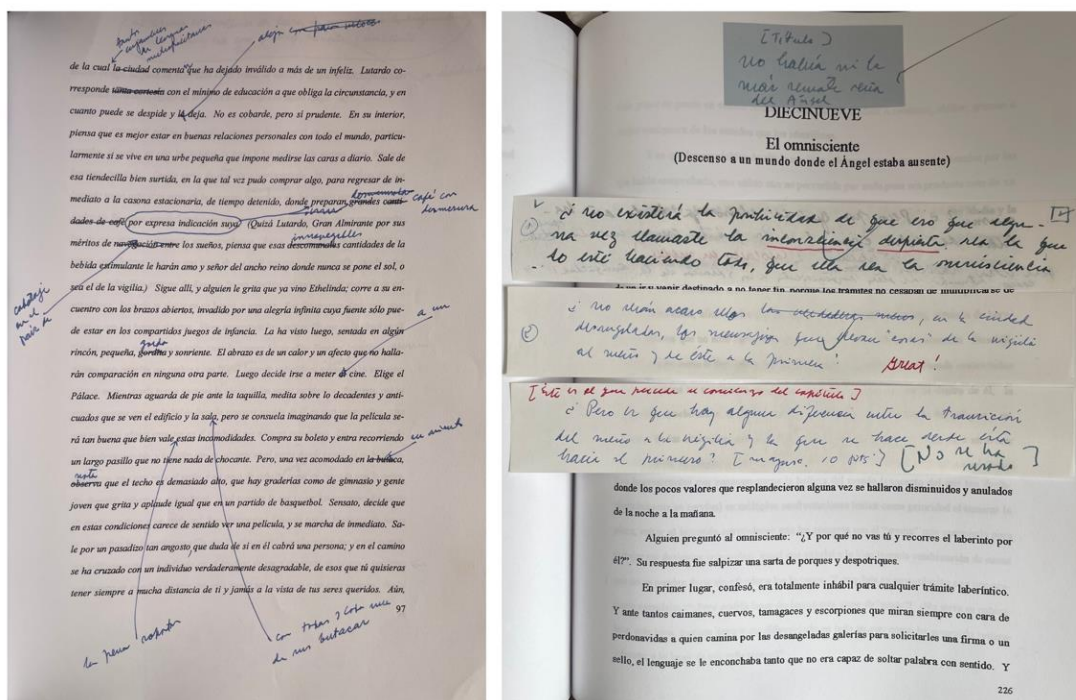 tanto
en lengua
de la cual la ciudad comenta que ha dejado inválido a más de un infeliz. Lutardo co-
rresponde tanta cortesía con el mínimo de educación a que obliga la circunstancia, y en
cuanto puede se despide y le deja. No es cobarde, pero sí prudente. En su interior,
piensa que es mejor estar en buenas relaciones personales con todo el mundo, particu-
larmente si se vive en una urbe pequeña que impone medirse las caras a diario. Sale de
esa tiendecilla bien surtida, en la que tal vez pudo comprar algo, para regresar de in-
mediato a la casona estacionaria, de tiempo detenido, donde preparan grandes canti-
café con
desmesura
dades de café por expresa indicación suya. (Quizá Lutardo, Gran Almirante por sus
méritos de navegación entre los sueños, piensa que esas descomunales cantidades de la
bebida estimulante le harán amo y señor del ancho reino donde nunca se pone el sol, o
sea el de la vigilia.) Sigue allí, y alguien le grita que vino Ethelinda; corre a su en-
cuentro con los brazos abiertos, invadido por una alegría infinita cuya fuente sólo pue-
cabotaje
en el
país de
a un
de estar en los compartidos juegos de infancia. La ha visto luego, sentada en algún
rincón, pequeña, gordita y sonriente. El abrazo es de un calor y un afecto que no halla-
rán comparación en ninguna otra parte. Luego decide irse a meter al cine. Elige el
Pálace. Mientras aguarda de pie ante la taquilla, medita sobre lo decadentes y anti-
cuados que se ven el edificio y la sala, pero se consuela imaginando que la película se-
rá tan buena que bien vale estas incomodidades. Compra su boleto y entra recorriendo
un largo pasillo que no tiene nada de chocante. Pero, una vez acomodado en la butaca,
su asiento
nota
observa que el techo es demasiado alto, que hay graderías como de gimnasio y gente
joven que grita y aplaude igual que en un partido de basquetbol. Sensato, decide que
en estas condiciones carece de sentido ver una película, y se marcha de inmediato. Sa-
le por un pasadizo tan angosto, que duda de si en él cabrá una persona; y en el camino
se ha cruzado con un individuo verdaderamente desagradable, de esos que tú quisieras
tener siempre a mucha distancia de ti y jamás a la vista de tus seres queridos. Aún,
97
la pena
con todas y cada una
de sus butacas
[Título]
no había ni la
más remota seña
del Ángel
DIECINUEVE
El omnisciente
(Descenso a un mundo donde el Ángel estaba ausente)
1
¿no existirá la posibilidad de que eso que algu-
na vez llamaste la inconsciencia despierta sea la que
lo esté haciendo todo, que ella sea la omnisciencia
2
¿no serán acaso ellos en la ciudad
desangelada, los mensajes que llevan "cosas" de la vigilia
al sueño y de éste a la primera?
Great!
[Éste es el que precede al comienzo del capítulo]
¿Pero es que hay alguna diferencia entre la transición
del sueño a la vigilia y la que se hace desde ésta
hacia el primero?
[No se ha
usado]
donde los pocos valores que resplandecieron alguna vez se hallaron disminuidos y anulados
de la noche a la mañana.
Alguien preguntó al omnisciente: “¿Y por qué no vas tú y recorres el laberinto por
él?”. Su respuesta fue salpizar una sarta de porques y despotriques.
En primer lugar, confesó, era totalmente inhábil para cualquier trámite laberíntico.
Y ante tantos caimanes, cuervos, tamagaces y escorpiones que miran siempre con cara de
perdonavidas a quien camina por las desangeladas galerías para solicitarles una firma o un
sello, el lenguaje se le enconchaba tanto que no era capaz de soltar palabra con sentido. Y
226